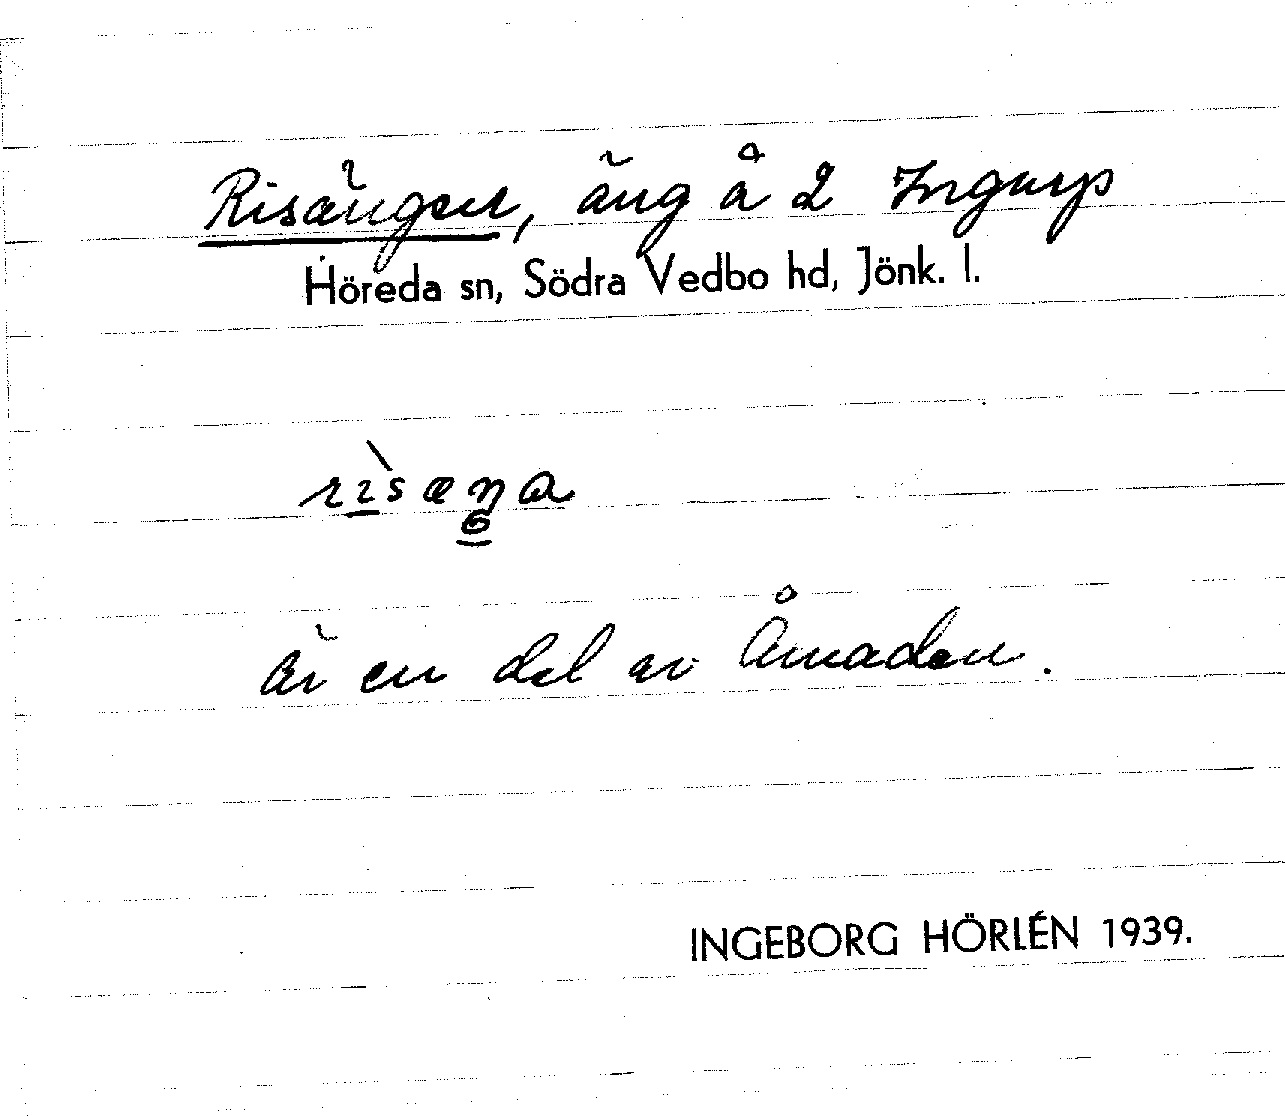 Risängen, äng å 2 Ingarp
Höreda sn, Södra Vedbo hd, Jönk. l.
rìsæŋa
är en del av Åmaden.
INGEBORG HÖRLÉN 1939.